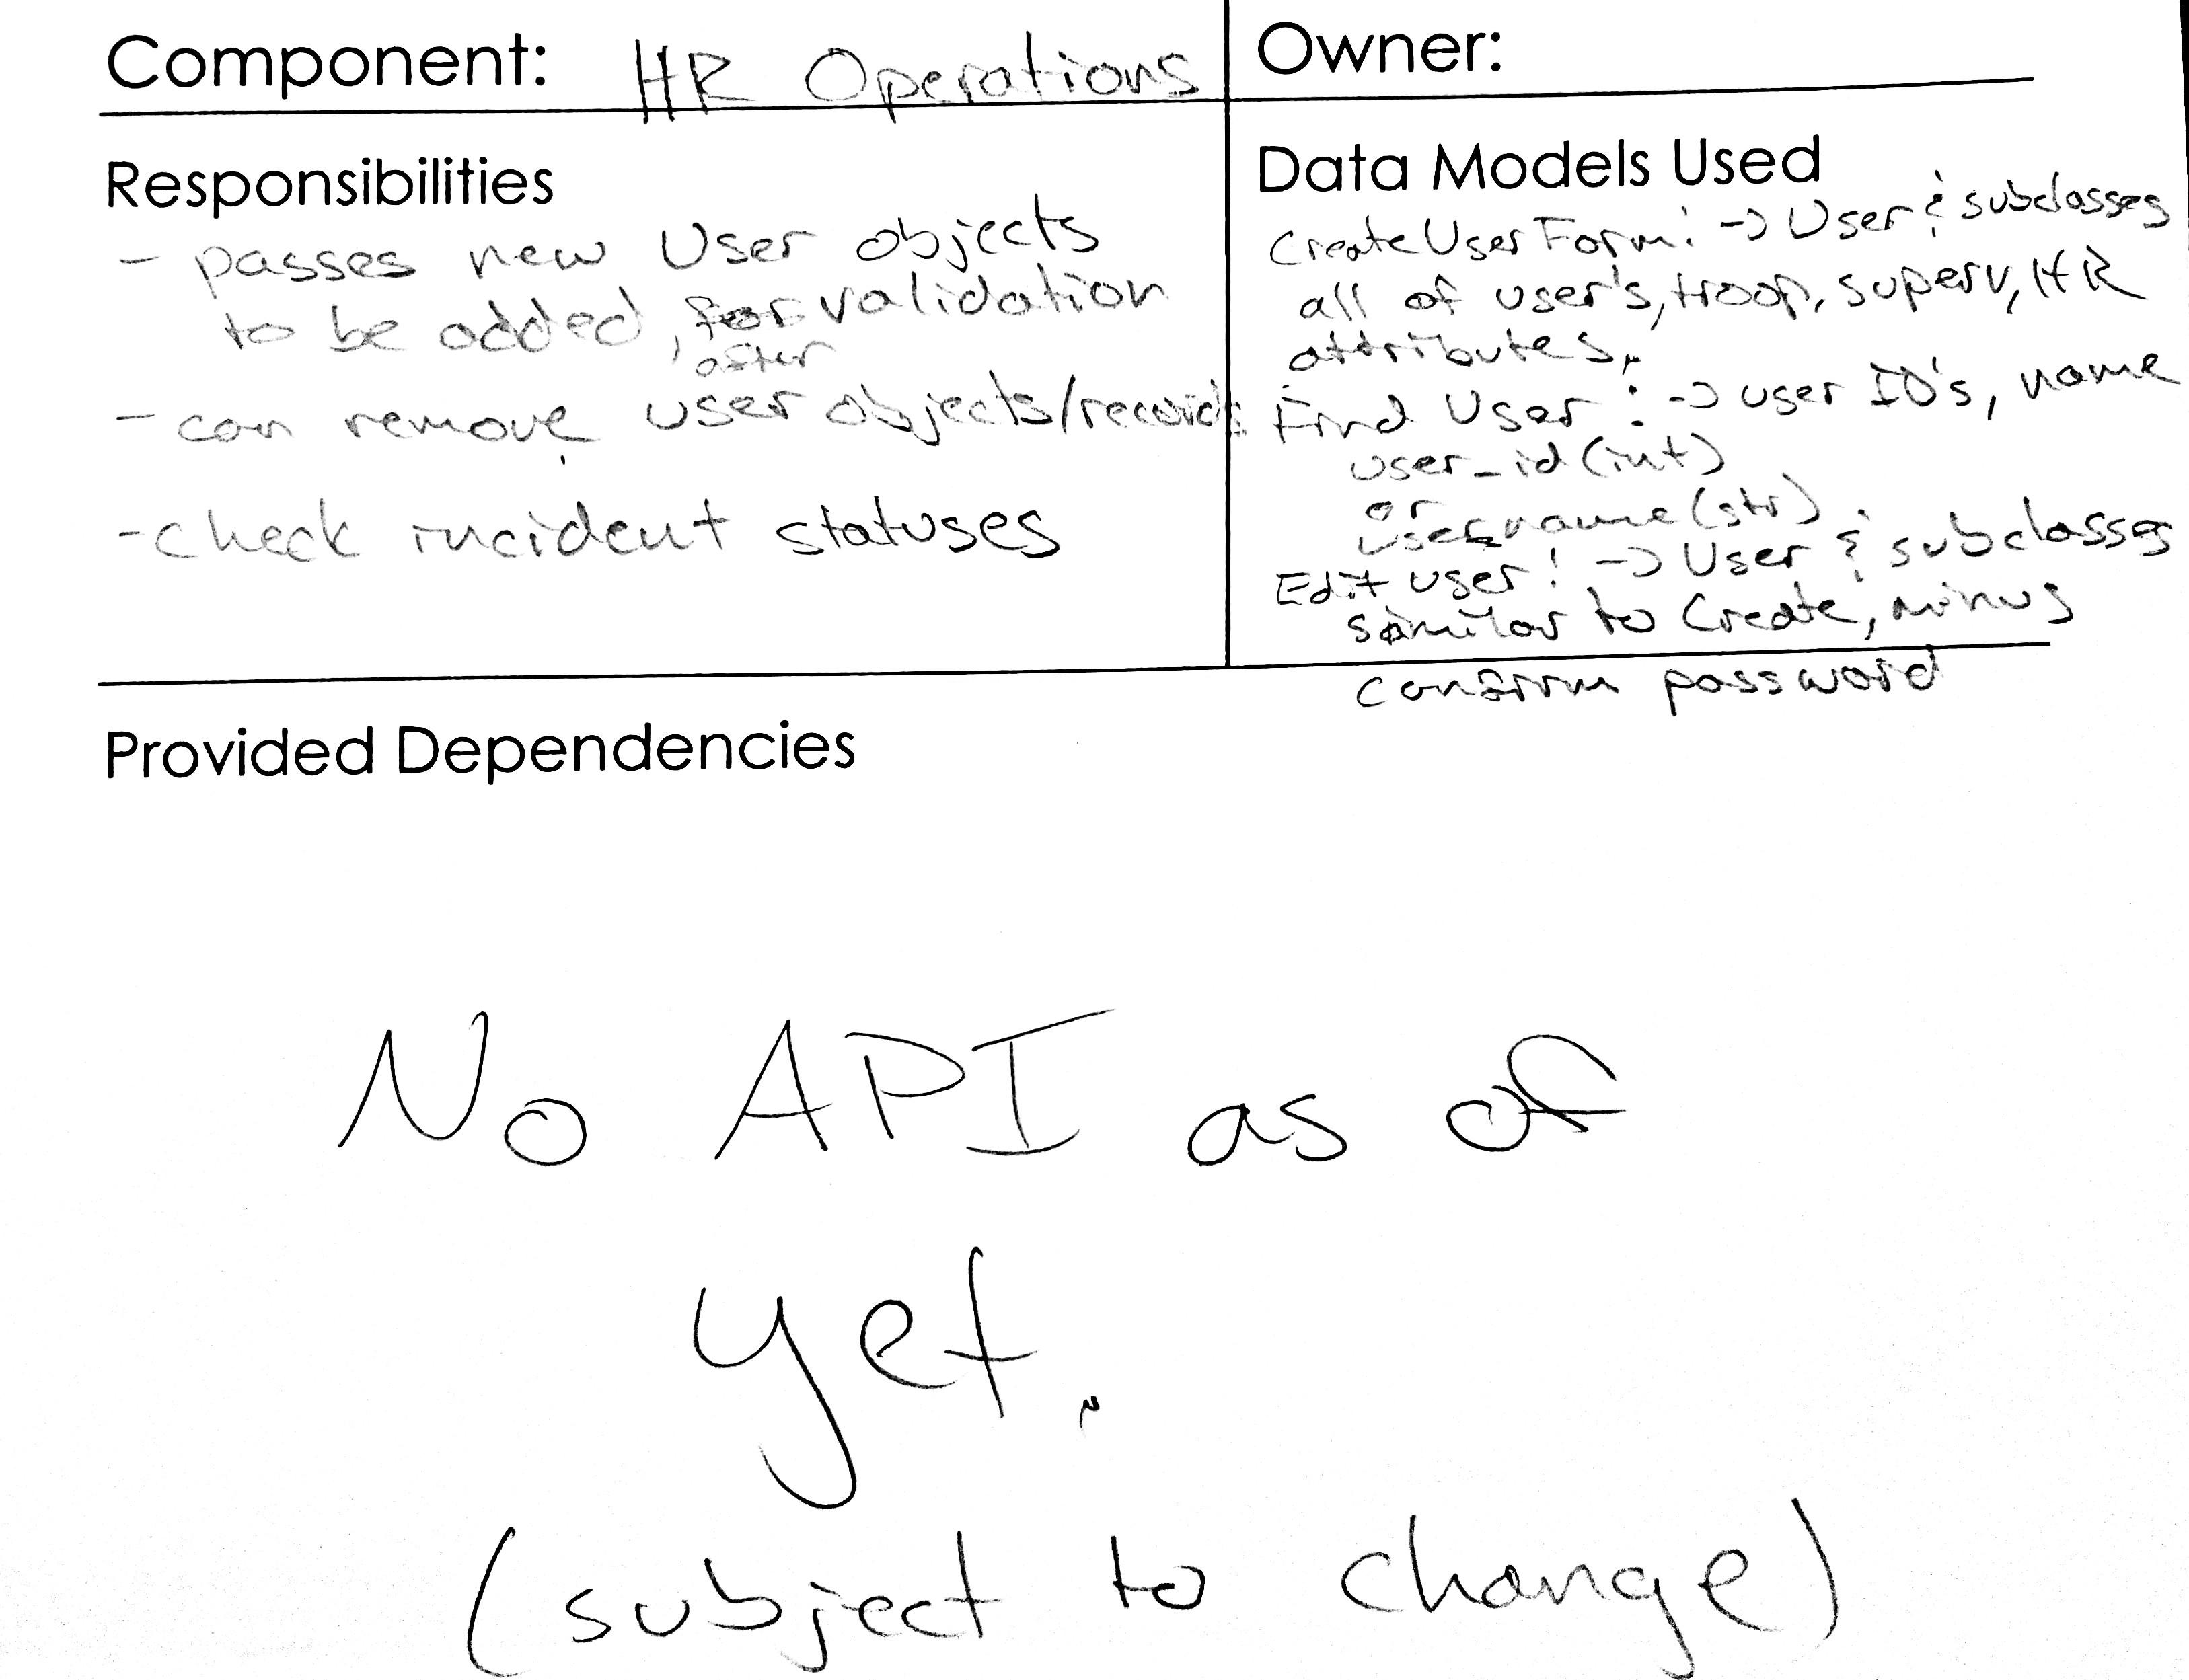 Component: HR Operations
Owner:
Responsibilities
- passes new User objects
to be added, for validation
after
- can remove user objects/records
- check incident statuses
Data Models Used
Create User Form: -> User & subclasses
all of user's, troop, superv, HR
attributes,
Find User : -> user ID's, name
user_id (int)
or
username (str)
Edit user: -> User & subclasses
similar to Create, minus
confirm password
Provided Dependencies
No API as of
yet.
(subject to change)